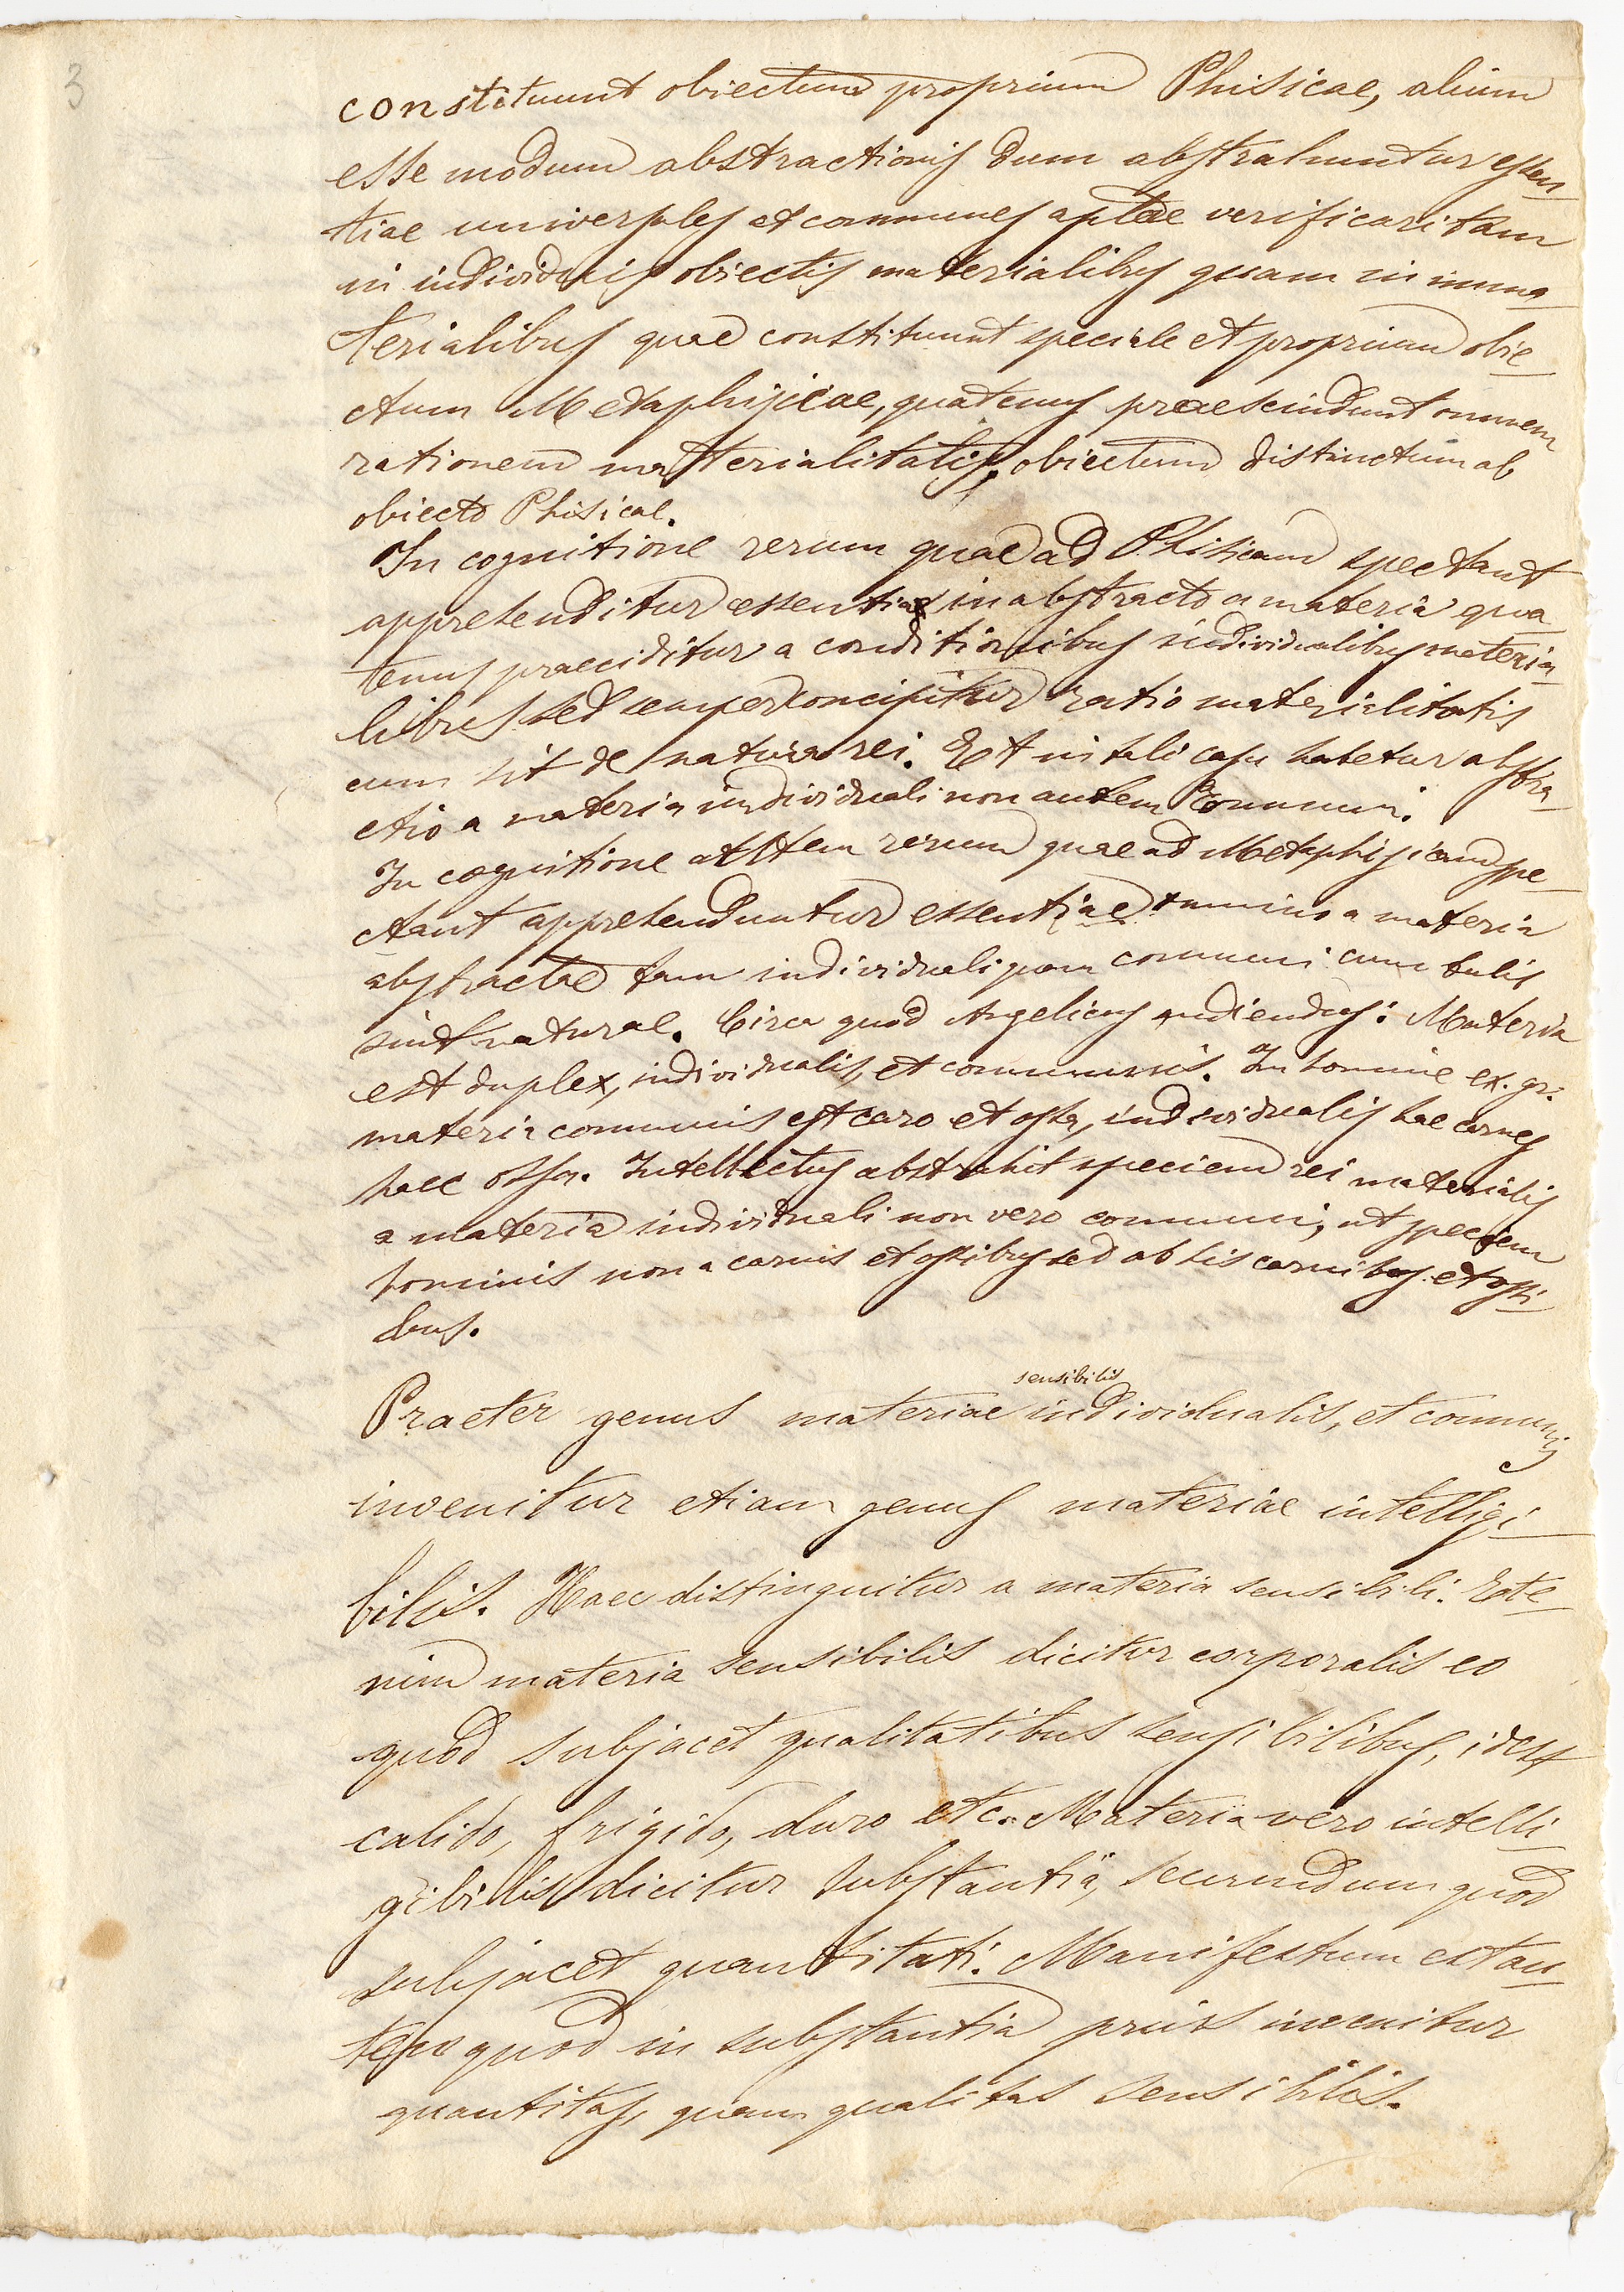 3
constituunt obiectum proprium Phisicae, alium
esse modum abstractionis dum abstrahuntur essen
tiae universales et communes aptae verificari tam
in individuis obiectis materialibus quam in imma
terialibus quae constituunt speciale et proprium obie
ctum Metaphisicae, quatenus praescindunt omnem
rationem materialitatis, obiectum distinctum ab
obiecto Phisicae.
In cognitione rerum quae ad Phisicam spectant
apprehenditur essentia in abstracto a materia qua
tenus praeciditur a conditionibus individualibus materia
libus sed semper concipitur ratio materialitatis
cum sit de natura rei. Et in tali casu habetur abstra
ctio a materia individuali non autem communi.
In cognitione autem rerum quae ad Metaphisicam spe
ctant apprehenduntur essentiae omnino a materia
abstractae tam individuali quam communi cum talis
sint naturae. Circa quod Angelicus audiendus: Materia
est duplex, individualis, et communis. In homine ex. gr.
materia communis est caro et ossa, individualis hae carnes
haec ossa. Intellectus abstrahit speciem rei materialis
a materia individuali non vero communi, ut speciem
hominis non a carnis et ossibus sed ab his carnibus et ossi
bus.
sensibilis
Praeter genus materiae individualis, et communis
invenitur etiam genus materiae intelligi
bilis. Haec distinguitur a materia sensibili. Ete
nim materia sensibilis dicitur corporalis eo
quod subjacet qualitatibus sensibilibus, idest
calido, frigido, duro etc. Materia vero intelli
gibilis dicitur substantia, secundum quod
subjacet quantitati. Manifestum est au
tem quod in substantia prius invenitur
quantitas, quam qualitas sensibilis.